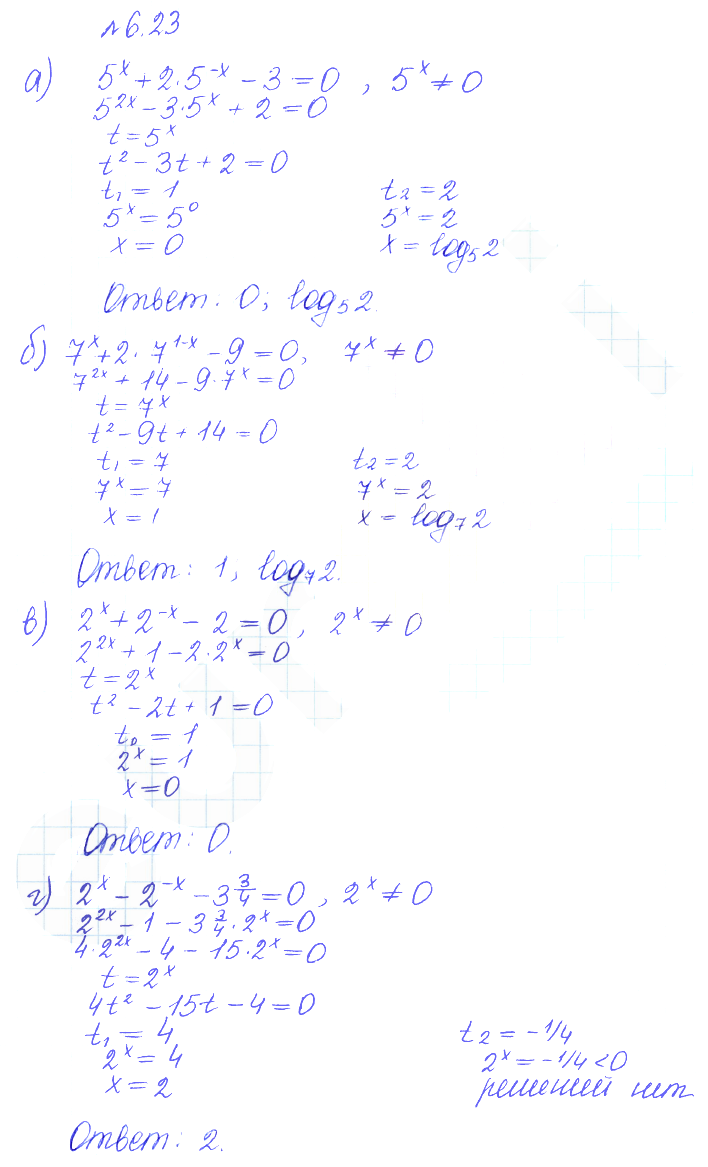 №6.23
а) 5^x + 2·5^-x − 3 = 0 , 5^x ≠ 0
5^2x − 3·5^x + 2 = 0
t = 5^x
t² − 3t + 2 = 0
t₁ = 1 t₂ = 2
5^x = 5^0 5^x = 2
x = 0 x = log₅2
Ответ: 0; log₅2.
б) 7^x + 2·7^1-x − 9 = 0, 7^x ≠ 0
7^2x + 14 − 9·7^x = 0
t = 7^x
t² − 9t + 14 = 0
t₁ = 7 t₂ = 2
7^x = 7 7^x = 2
x = 1 x = log₇2
Ответ: 1, log₇2.
в) 2^x + 2^-x − 2 = 0 , 2^x ≠ 0
2^2x + 1 − 2·2^x = 0
t = 2^x
t² − 2t + 1 = 0
t₀ = 1
2^x = 1
x = 0
Ответ: 0.
г) 2^x − 2^-x − 3 3/4 = 0 , 2^x ≠ 0
2^2x − 1 − 3 3/4·2^x = 0
4·2^2x − 4 − 15·2^x = 0
t = 2^x
4t² − 15t − 4 = 0
t₁ = 4 t₂ = −1/4
2^x = 4 2^x = −1/4 < 0
x = 2 решений нет
Ответ: 2.